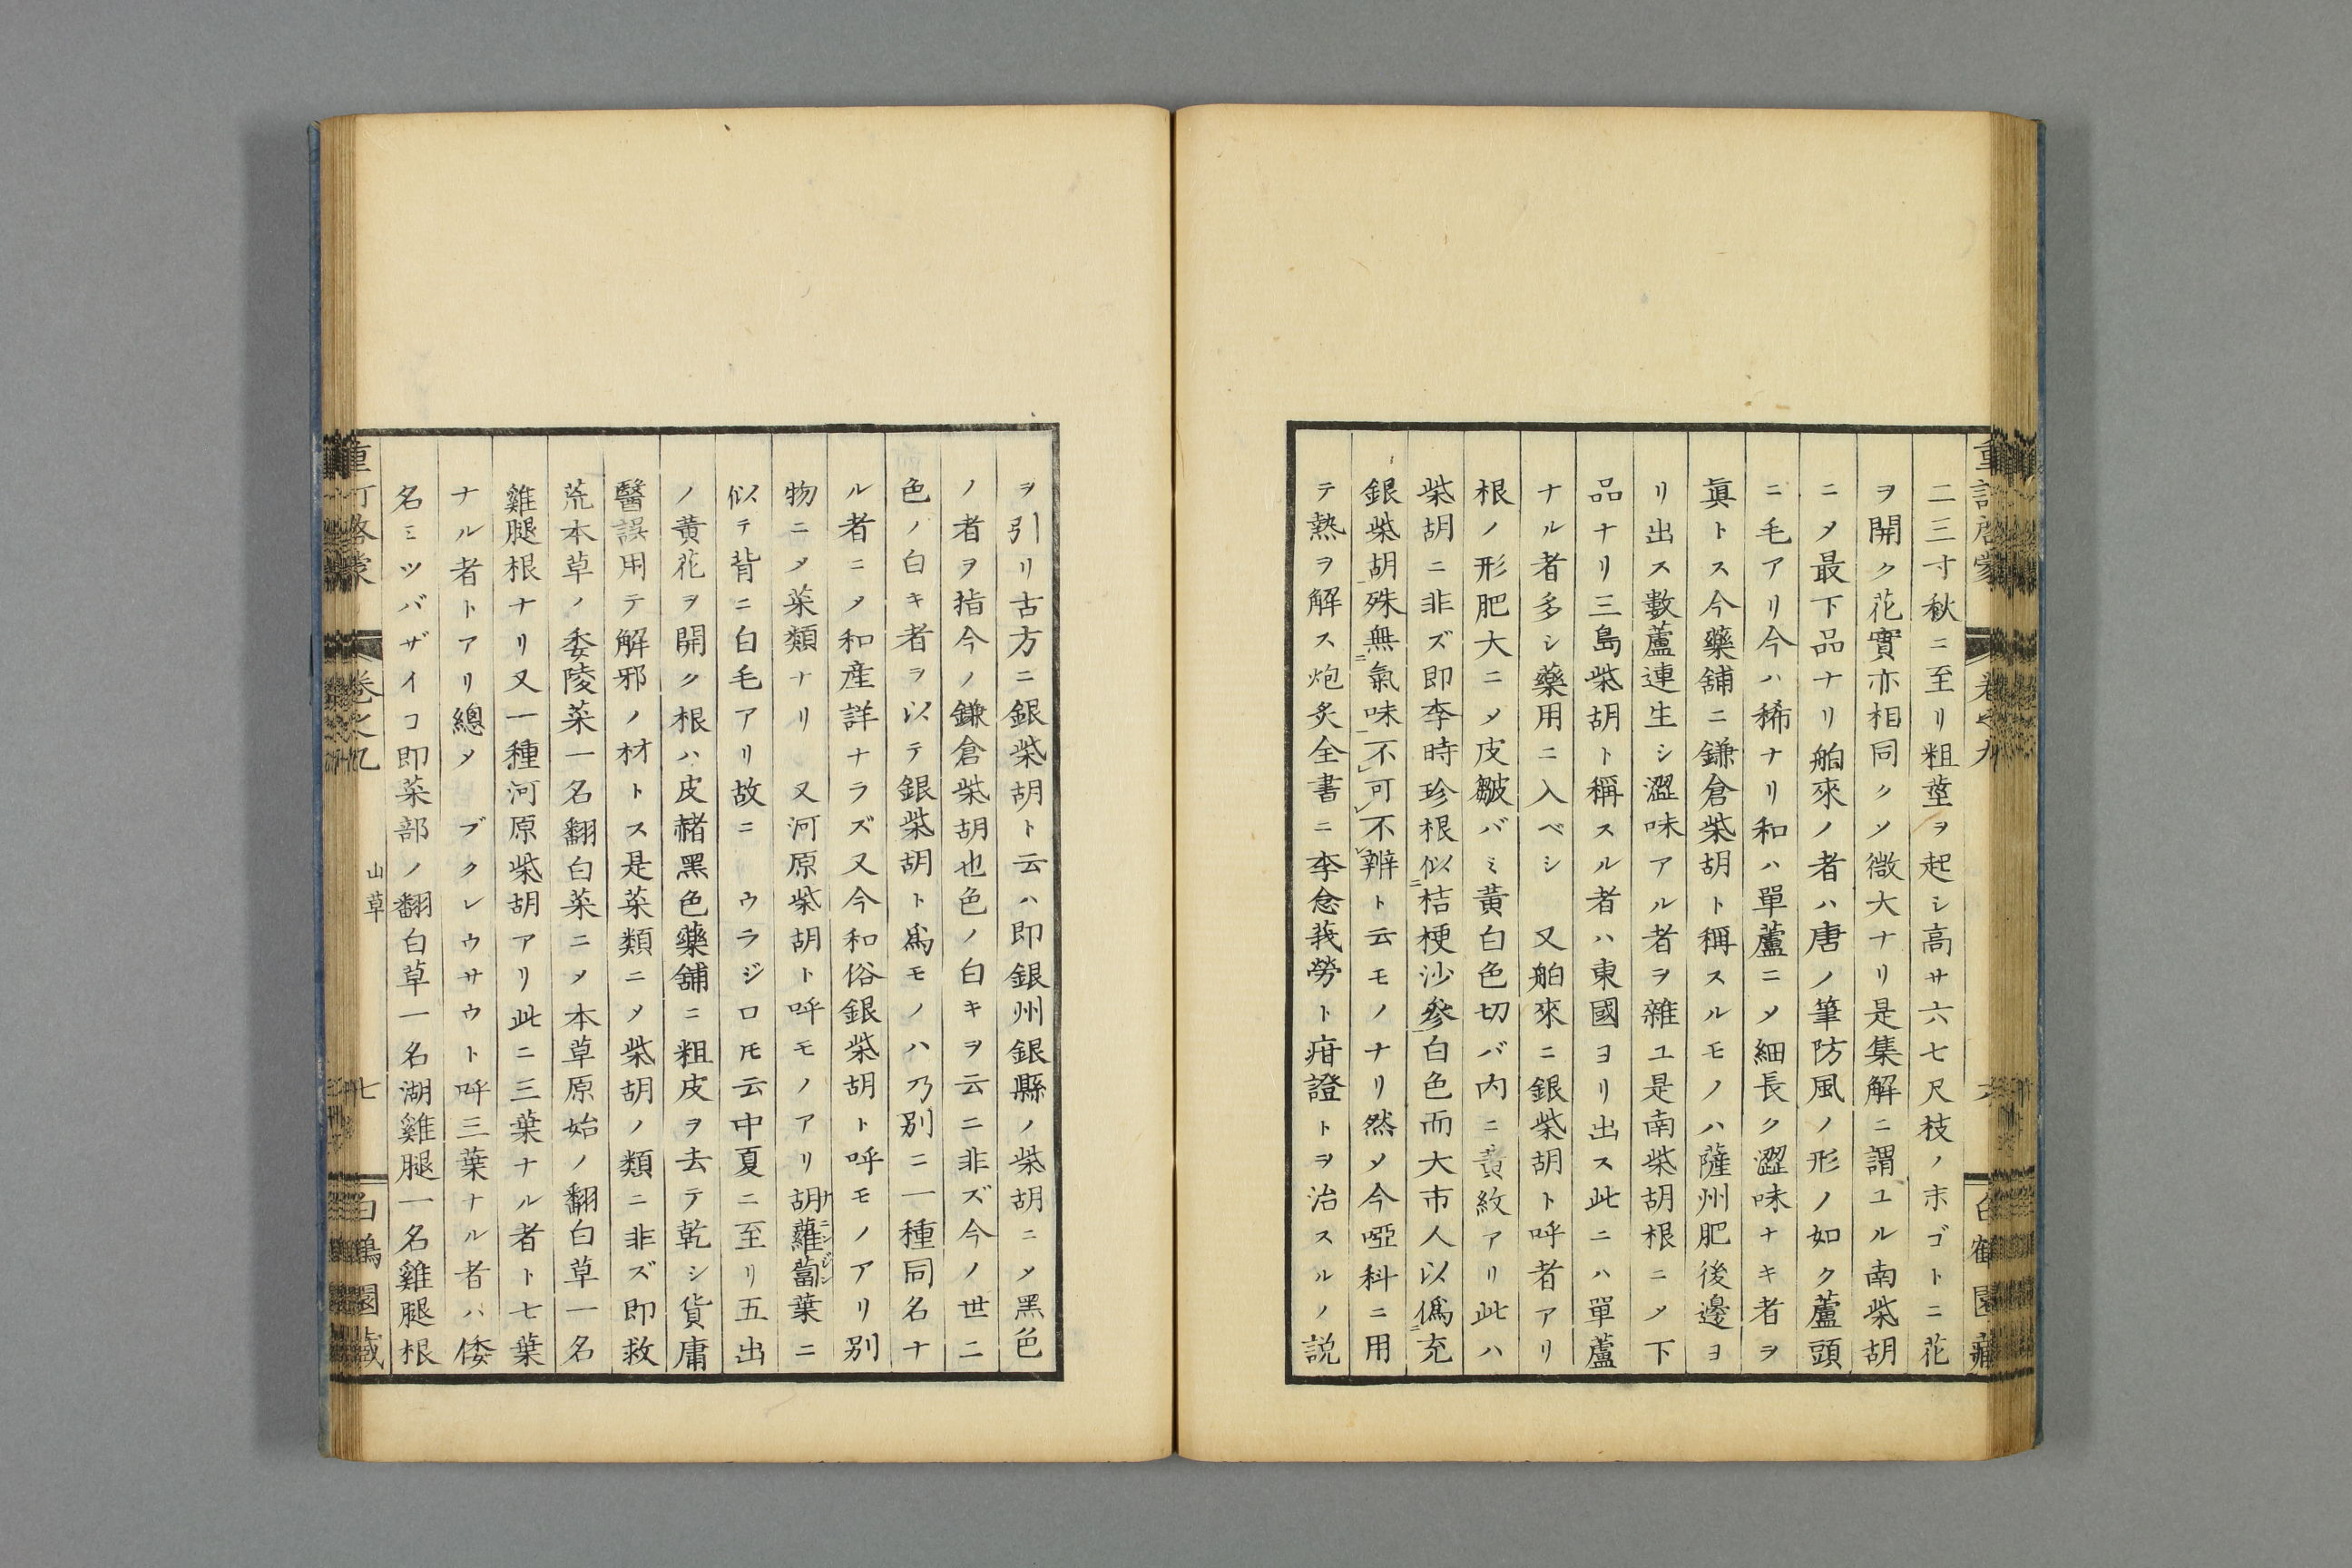 二三寸秋ニ至リ粗莖ヲ起シ高サ六七尺枝ノ末ゴトニ花
ヲ開ク花實亦相同クソ微大ナリ是集解ニ謂ユル南柴胡
ニメ最下品ナリ舶來ノ者ハ唐ノ筆防風ノ形ノ如ク蘆頭
ニ毛アリ今ハ稀ナリ和ハ單蘆ニメ細長ク澀味ナキ者ヲ
眞トス今藥舖ニ鎌倉柴胡ト稱スルモノハ薩州肥後邊ヨ
リ出ス數蘆連生シ澀味アル者ヲ雜ユ是南柴胡根ニメ下
品ナリ三島柴胡ト稱スル者ハ東國ヨリ出ス此ニハ單蘆
ナル者多シ藥用ニ入ベシ 又舶來ニ銀柴胡ト呼者アリ
根ノ形肥大ニメ皮皺バミ黃白色切バ內ニ黃紋アリ此ハ
柴胡ニ非ズ即李時珍根似桔梗沙參白色而大市人以僞充
銀柴胡殊無氣味不可不辨ト云モノナリ然ソ今啞科ニ用
テ熱ヲ解ス炮炙全書ニ李念莪勞ト疳證トヲ治スルノ説
重訂啓蒙 卷之九 六 白鶴園藏
ヲ引リ古方ニ銀柴胡ト云ハ即銀州銀縣ノ柴胡ニメ黑色
ノ者ヲ指今ノ鎌倉柴胡也色ノ白キヲ云ニ非ズ今ノ世ニ
色ノ白キ者ヲ以テ銀柴胡ト爲モノハ乃別ニ一種同名ナ
ル者ニメ和産詳ナラズ又今和俗銀柴胡ト呼モノアリ別
物ニメ菜類ナリ 又河原柴胡ト呼モノアリ胡蘿蔔葉ニ
似テ背ニ白毛アリ故ニ ウラジロ𪜈云中夏ニ至リ五出
ノ黃花ヲ開ク根ハ皮赭黑色藥舖ニ粗皮ヲ去テ乾シ貨庸
醫誤用テ解邪ノ材トス是菜類ニメ柴胡ノ類ニ非ズ即救
荒本草ノ委陵菜一名翻白菜ニメ本草原始ノ翻白草一名
雞腿根ナリ又一種河原柴胡アリ此ニ三葉ナル者ト七葉
ナル者トアリ總メ ブクレウサウト呼三葉ナル者ハ倭
名ミツバザイコ即菜部ノ翻白草一名湖雞腿一名雞腿根
山草
重訂啓蒙 卷之九 七 白鶴園藏